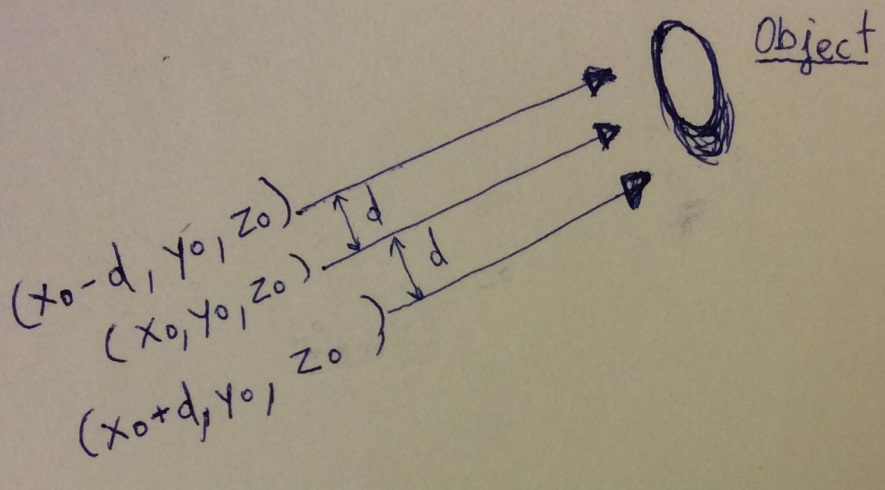 Object
d
(x0-d, y0, z0)
d
(x0, y0, z0)
(x0+d, y0, z0)